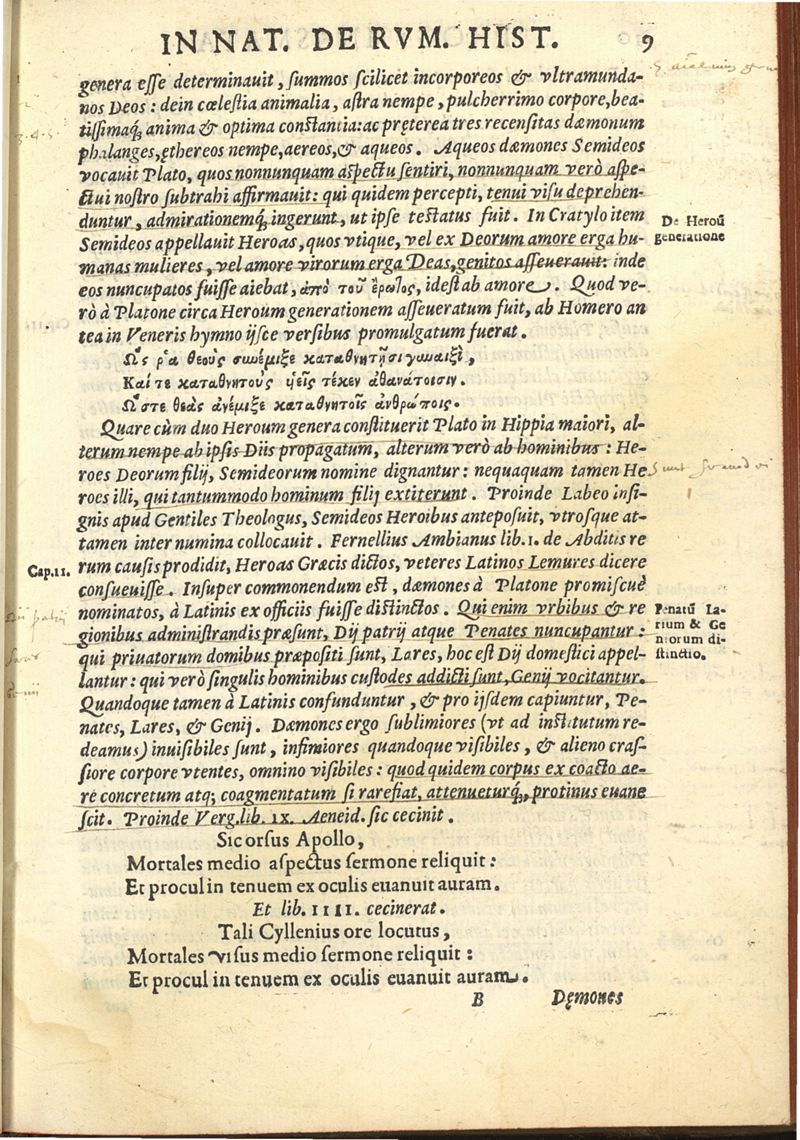 IN NAT. DE RVM. HIST. 9
genera esse determinauit, summos scilicet incorporeos & vltramunda-
nos Deos: dein cœlestia animalia, astra nempe, pulcherrimo corpore, bea-
tissimaq́; anima & optima constantia: ac pręterea tres recensitas dæmonum
phalanges, ęthereos nempe, aereos, & aqueos. Aqueos dæmones Semideos
vocauit Plato, quos nonnunquam aspectu sentiri, nonnunquam verò aspe-
ctui nostro subtrahi affirmauit: qui quidem percepti, tenui visu deprehen-
duntur, admirationemq́; ingerunt, ut ipse testatus fuit. In Cratylo item
Semideos appellauit Heroas, quos vtique, vel ex Deorum amore erga hu-
manas mulieres, vel amore virorum erga Deas, genitos asseuerauit: inde
eos nuncupatos fuisse aiebat, ἀπὸ τοῦ ἔρωτος, idest ab amore. Quod ve-
rò à Platone circa Heroum generationem asseueratum fuit, ab Homero an
tea in Veneris hymno ijsce versibus promulgatum fuerat.
Ὥς ῥα θεοὺς συνέμιξε καταθνητῇσι γυναιξὶ,
Καί τε καταθνητοὺς υἱεῖς τέκεν ἀθανάτοισιν.
Ὥστε θεὰς ἀνέμιξε καταθνητοῖς ἀνθρώποις.
Quare cùm duo Heroum genera constituerit Plato in Hippia maiori, al-
terum nempe ab ipsis Diis propagatum, alterum verò ab hominibus: He-
roes Deorum filij, Semideorum nomine dignantur: nequaquam tamen He
roes illi, qui tantummodo hominum filij extiterunt. Proinde Labeo insi-
gnis apud Gentiles Theologus, Semideos Heroibus anteposuit, vtrosque at-
tamen inter numina collocauit. Fernellius Ambianus lib. 1. de Abditis re
rum causis prodidit, Heroas Græcis dictos, veteres Latinos Lemures dicere
consueuisse. Insuper commonendum est, dæmones à Platone promiscuè
nominatos, à Latinis ex officiis fuisse distinctos. Qui enim vrbibus & re
gionibus administrandis præsunt, Dij patrij atque Penates nuncupantur:
qui priuatorum domibus præpositi sunt, Lares, hoc est Dij domestici appel-
lantur: qui verò singulis hominibus custodes addicti sunt, Genij vocitantur.
Quandoque tamen à Latinis confunduntur, & pro ijsdem capiuntur, Pe-
nates, Lares, & Genij. Dæmones ergo sublimiores (vt ad institutum re-
deamus) inuisibiles sunt, infimiores quandoque visibiles, & alieno cras-
siore corpore vtentes, omnino visibiles: quod quidem corpus ex coacto ae-
re concretum atq; coagmentatum si rarefiat, attenueturq́;, protinus euane
scit. Proinde Verg. lib. IX. Aeneid. sic cecinit.
Sic orsus Apollo,
Mortales medio aspectus sermone reliquit:
Et procul in tenuem ex oculis euanuit auram.
Et lib. IIII. cecinerat.
Tali Cyllenius ore locutus,
Mortales visus medio sermone reliquit:
Et procul in tenuem ex oculis euanuit auram.
B Dęmones
De Heroũ
generatione
Cap. 11.
Penatũ La-
rium & Ge
niorum di-
stinctio.
Dii patrij
Lares
Genij